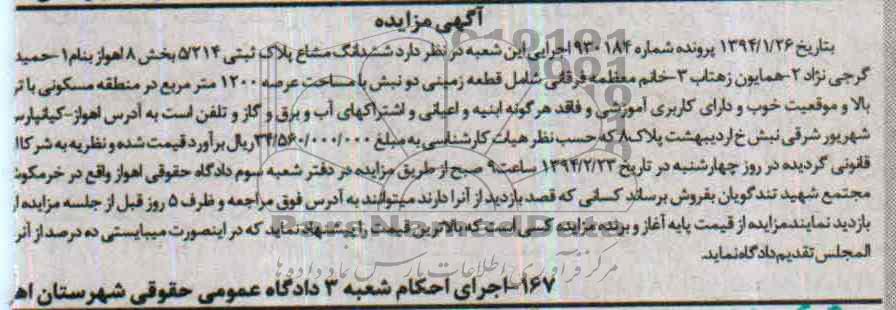 آگهی مزایده
بتاریخ ۱۳۹۴/۱/۲۶ پرونده شماره ۹۳۰۱۸۴ اجرایی این شعبه در نظر دارد ششدانگ مشاع پلاک ثبتی ۵/۲۱۴ بخش ۸ اهواز بنام ۱-حمید
گرجی نژاد ۲-همایون زهتاب ۳-خانم معظمه فرقانی شامل قطعه زمینی دو نبش با مساحت عرصه ۱۲۰۰ متر مربع در منطقه مسکونی با تر
بالا و موقعیت خوب و دارای کاربری آموزشی و فاقد هرگونه ابنیه و اعیانی و اشتراکهای آب و برق و گاز و تلفن است به آدرس اهواز-کیانپارس
شهریور شرقی نبش خ اردیبهشت پلاک۸ که حسب نظر هیات کارشناسی به مبلغ ۳۴/۵۶۰/۰۰۰/۰۰۰ ریال برآورد قیمت شده و نظریه به شرکاا
قانونی گردیده در روز چهارشنبه در تاریخ ۱۳۹۴/۲/۲۳ ساعت۹ صبح از طریق مزایده در دفتر شعبه سوم دادگاه حقوقی اهواز واقع در خرمکوش
مجتمع شهید تندگویان بفروش برساند کسانی که قصد بازدید از آنرا دارند میتوانند به آدرس فوق مراجعه و ظرف ۵ روز قبل از جلسه مزایده از
بازدید نمایند.مزایده از قیمت پایه آغاز و برنده مزایده کسی است که بالاترین قیمت را پیشنهاد نماید که در اینصورت میبایستی ده درصد از آنر
المجلس تقدیم دادگاه نماید.
مرکز فرآوری اطلاعات پارس نماد داده ها
۱۶۷-اجرای احکام شعبه ۳ دادگاه عمومی حقوقی شهرستان اه